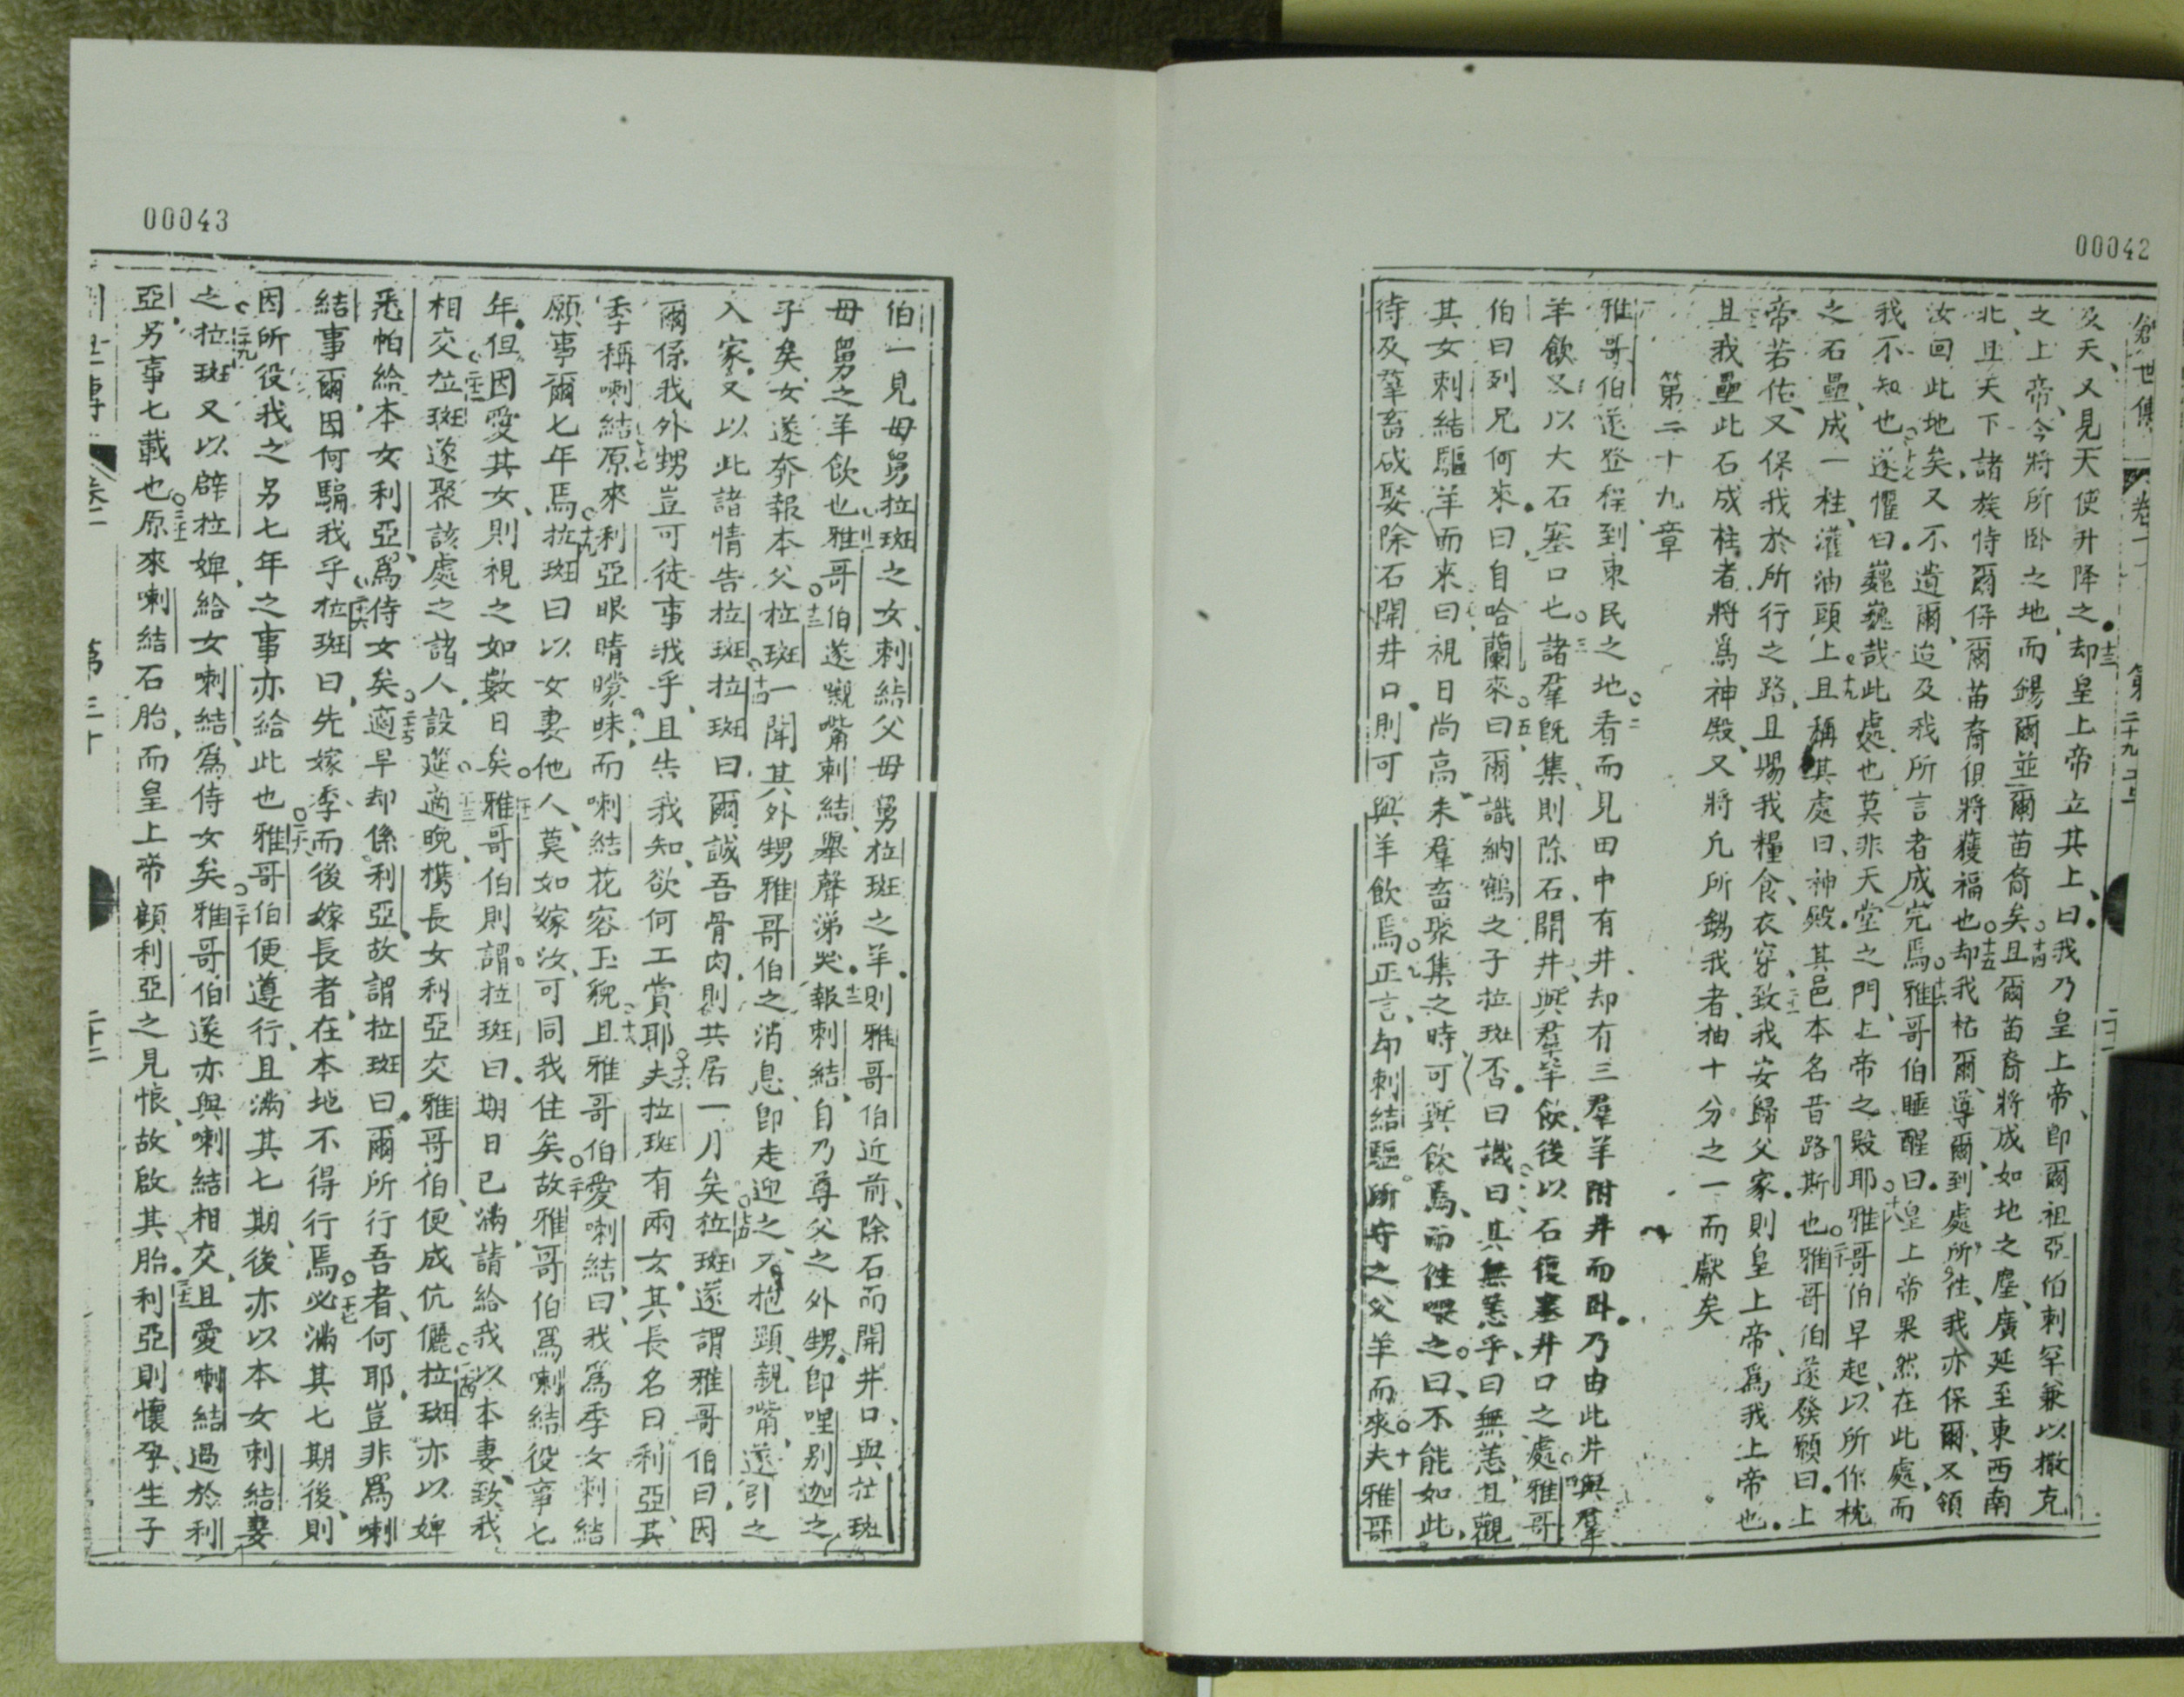 00042
創世傳 卷一 第二十九章
及天、又見天使升降之。十三却皇上帝立其上、曰我乃皇上帝、即爾祖亞伯剌罕兼以撒克
之上帝、今將所卧之地、而錫爾並爾苗裔矣。十四且爾苗裔將成如地之塵、廣延至東西南
北、且天下諸族恃爾俾爾苗裔俱將獲福也。十五却我祐爾、導爾到處所往、我亦保爾、又領
汝回此地矣、又不遺爾、迨及我所言者成完焉。十六雅哥伯睡醒曰、皇上帝果然在此處、而
我不知也。十七遂懼曰、巍巍哉此處也、莫非天堂之門、上帝之殿耶。十八雅哥伯早起、以所作枕
之石壘成一柱、灌油頭上。十九且稱其處曰神殿。其邑本名昔路斯也。二十雅哥伯遂發願曰、上
帝若佑、又保我於所行之路、且賜我糧食、衣穿、二十一致我安歸父家、則皇上帝、爲我上帝也。
且我壘此石成柱者、將爲神殿、又將凡所錫我者、抽十分之一而獻矣
第二十九章
雅哥伯遂登程、到東民之地。二看而見田中有井、却有三羣羊附井而卧、乃由此井與羣
羊飲、又以大石塞口也。三諸羣既集、則除石、開井、與羣羊飲、後以石復塞井口之處。四雅哥
伯曰、列兄何來、曰、自哈蘭來。五曰、爾識納鶴之子拉斑否。曰識。曰、其無恙乎、曰無恙、且觀
其女剌結驅羊而來。曰、視日尚高、未羣畜聚集之時、可與飲焉、而往喂之。曰、不能如此、
待及羣畜咸娶、除石開井口、則可與羊飲焉。九正言、却剌結驅所守之父羊而來。十夫雅哥
00043
伯一見母舅拉斑之女、剌結父母舅拉斑之羊、則雅哥伯近前、除石而開井口、與拉斑
母舅之羊飲也。十一雅哥伯遂囎嘴剌結、舉聲涕哭。十二報剌結、自乃尊父之外甥、即哩别迦之
子矣、女遂奔報本父。十三拉斑一聞其外甥雅哥伯之消息、即走迎之、又抱頸、親嘴、遂引之
入家、又以此諸情告拉斑。十四拉斑曰、爾誠吾骨肉、則共居一月矣。十五拉斑遂謂雅哥伯曰、因
爾係我外甥、豈可徒事我乎、且告我知、欲何工賞耶。十六夫拉斑有兩女、其長名曰利亞、其
季稱喇結。十七原來利亞眼睛矇昧、而喇結花容玉貌。十八且雅哥伯愛喇結、曰、我爲季女剌結
願事爾七年焉。十九拉斑曰、以女妻他人、莫如嫁汝、可同我住矣。二十故雅哥伯爲喇結役事七
年、但因愛其女、則視之如數日矣。二十一雅哥伯則謂拉斑曰、期日已滿、請給我以本妻、致我
相交。二十二拉斑遂聚該處之諸人、設筵。二十三適晚携長女利亞交雅哥伯、便成伉儷。二十四拉斑亦以婢
悉帕給本女利亞、爲侍女矣。二十五適早却係利亞、故謂拉斑曰、爾所行吾者、何耶、豈非爲喇
結事爾、因何騙我乎。二十六拉斑曰、先嫁季而後嫁長者、在本地不得行焉。二十七必滿其七期後、則
因所役我之另七年之事、亦給此也。二十八雅哥伯便遵行、且滿其七期、後亦以本女剌結妻
之。二十九拉斑又以辟拉婢、給女喇結、爲侍女矣。三十雅哥伯遂亦與喇結相交、且愛喇結過於利
亞、另事七載也。三十一原來喇結石胎、而皇上帝顧利亞之見恨、故啟其胎。三十二利亞則懷孕、生子
創世傳 卷一 第三十 二十二